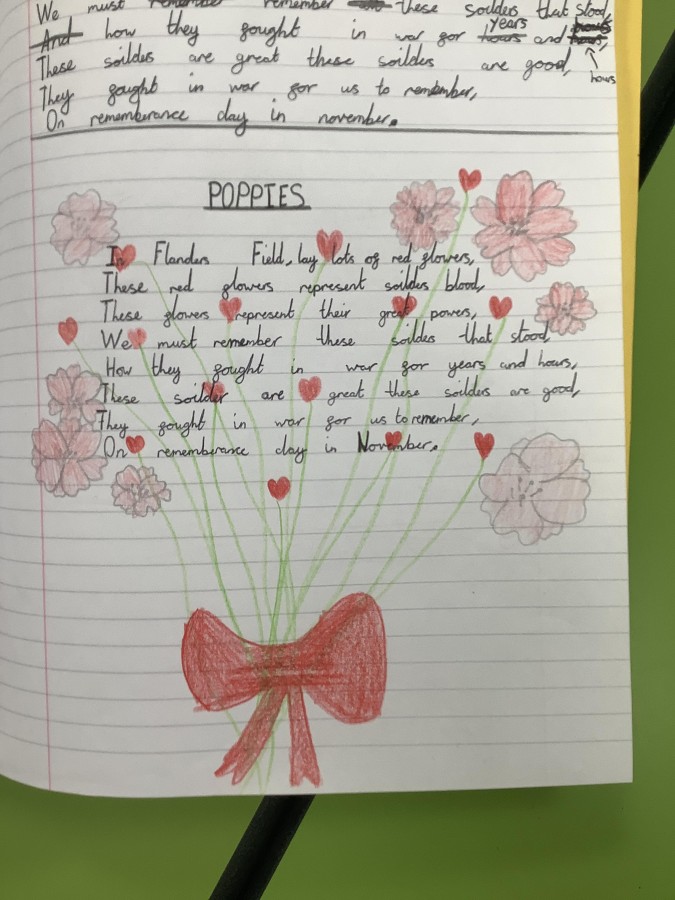 We must remember remember these soilders that stood,
And how they gought in war gor hours years and hours,
hours
These soildes are great these soildes are good,
They gought in war gor us to remember,
On rememberance day in november.
POPPIES
In Flanders Field, lay lots og red glowers,
These red glowers represent soildes blood,
These glowers represent their great powers,
We must remember these soildes that stood,
How they gought in war gor years and hours,
These soilder are great these soilders are good,
They gought in war gor us to remember,
On rememberance day in November.